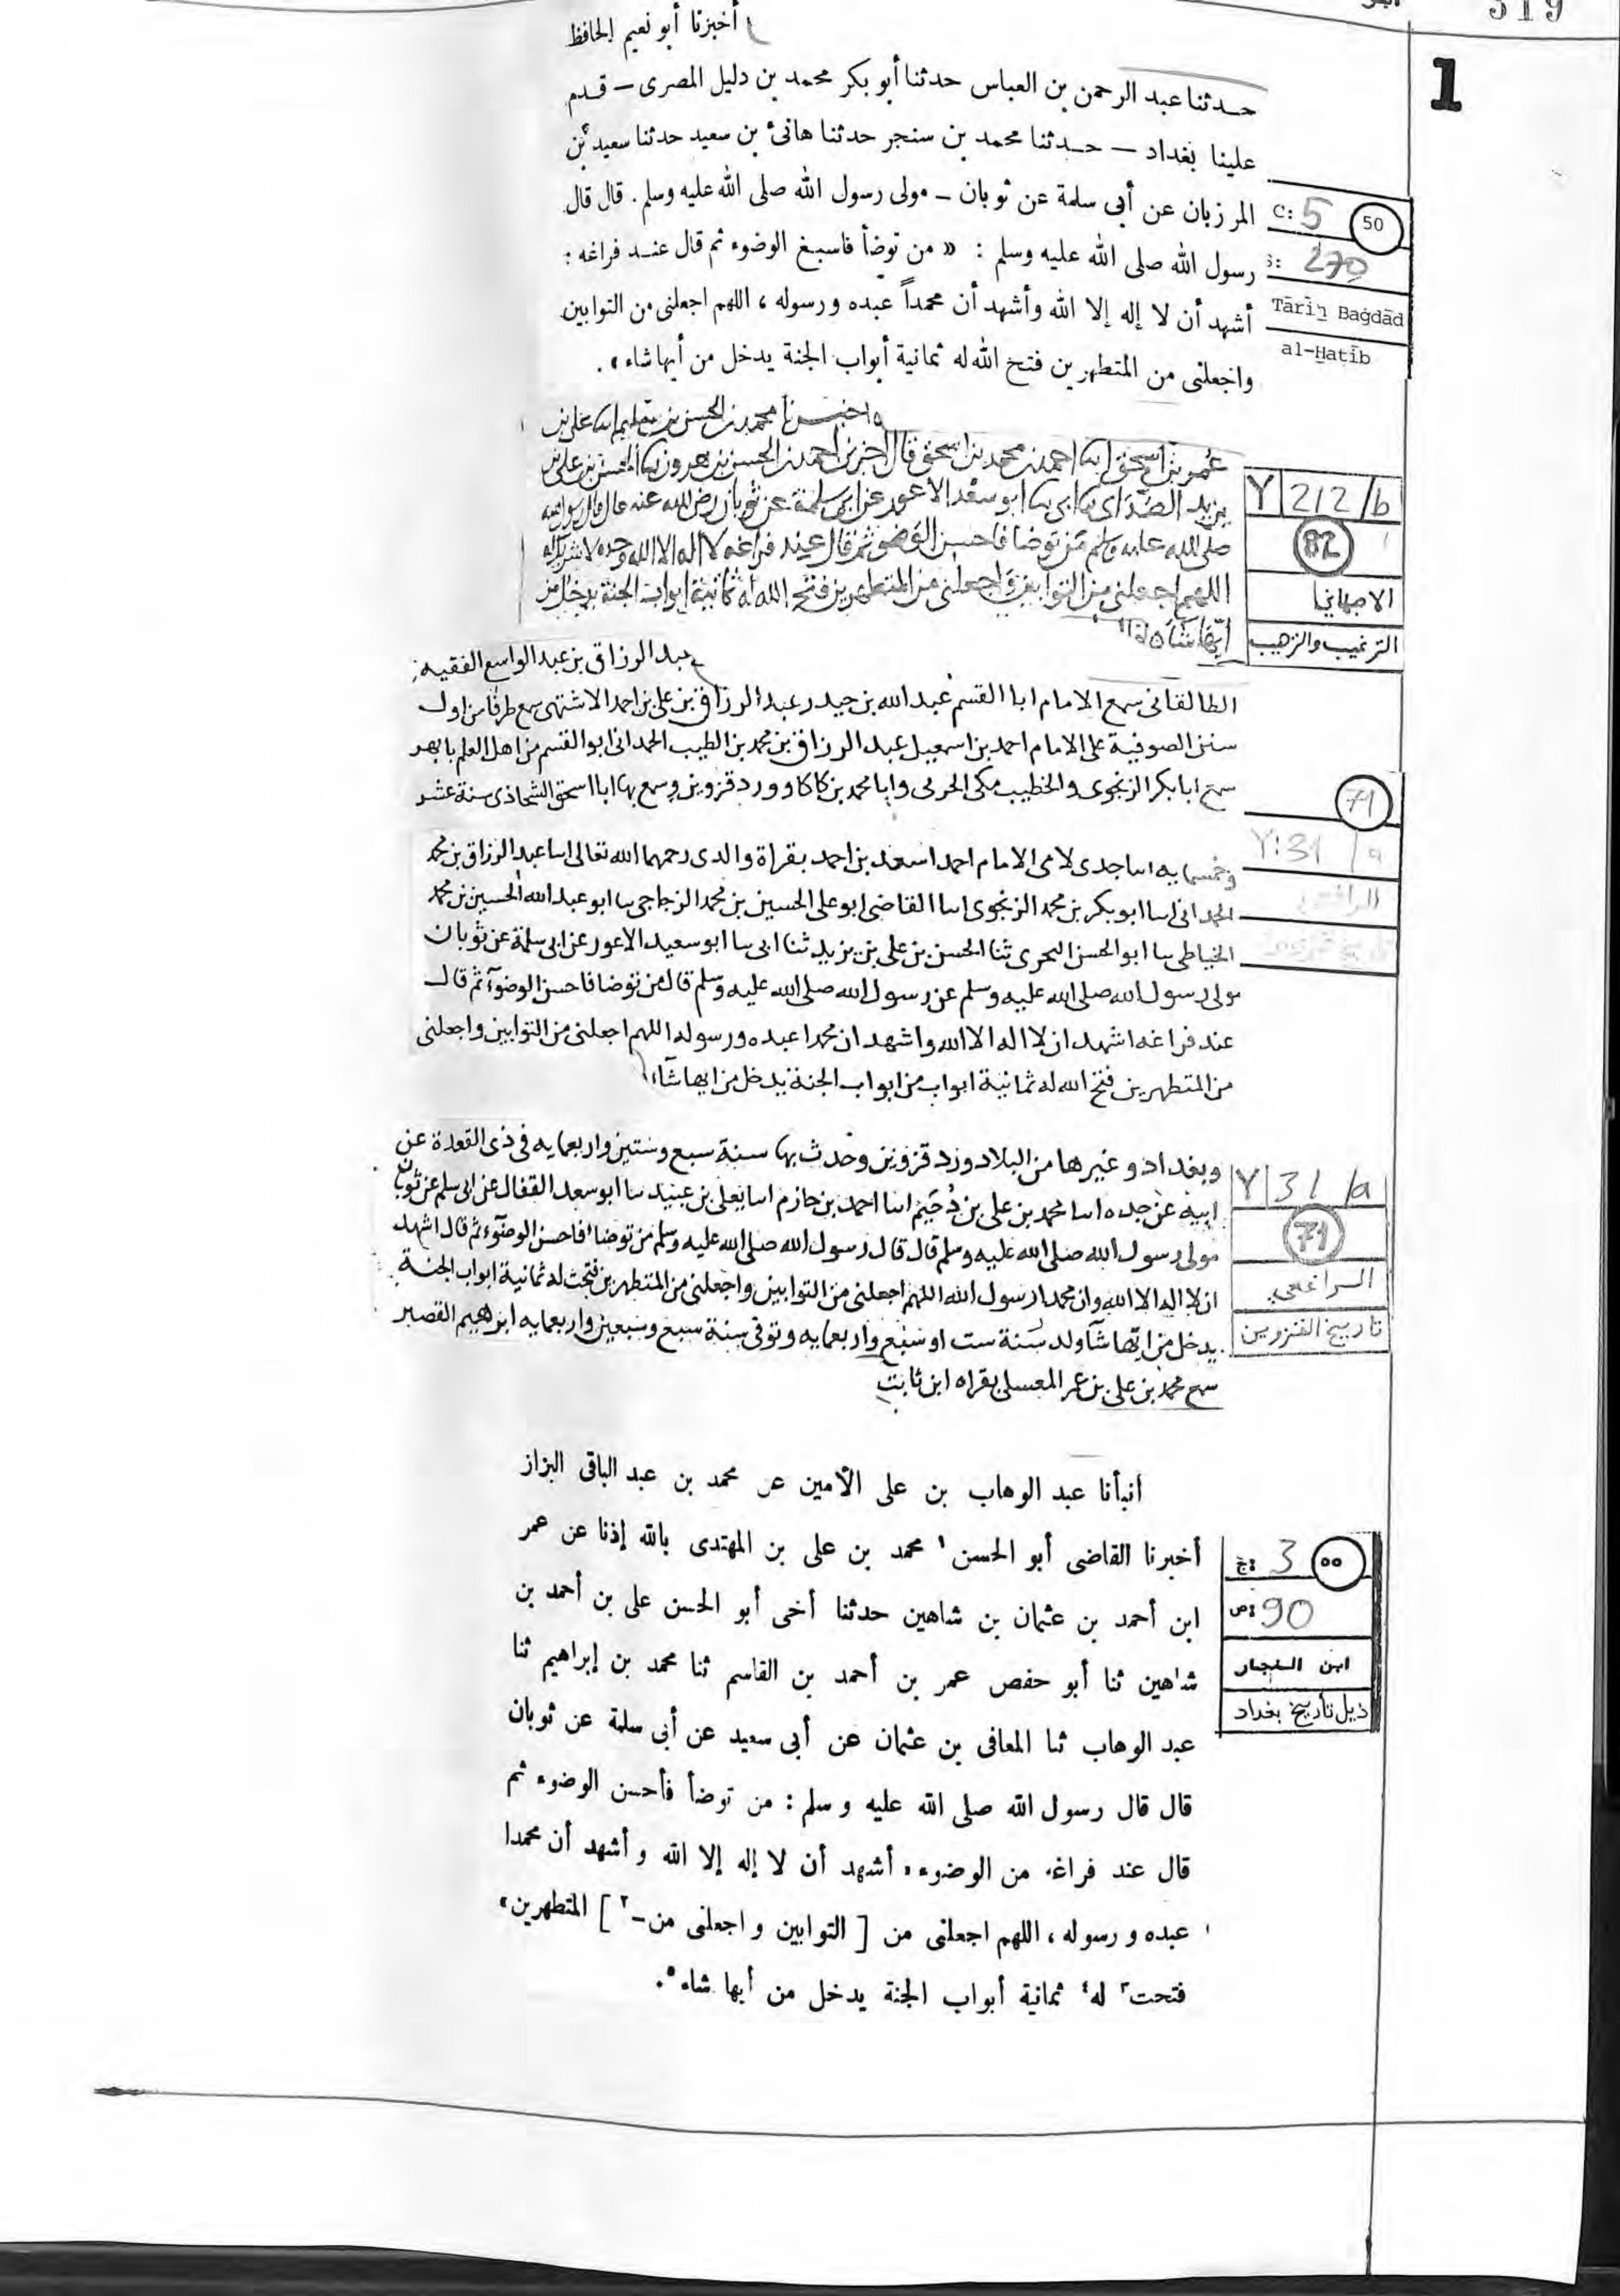 319
1
أخبرنا أبو نعيم الحافظ
حدثنا عبد الرحمن بن العباس حدثنا أبو بكر محمد بن دليل المصرى – قدم
علينا بغداد – حدثنا محمد بن سنجر حدثنا هانئ بن سعيد حدثنا سعيد بن
المرزبان عن أبى سلمة عن ثوبان – مولى رسول الله صلى الله عليه وسلم . قال قال
رسول الله صلى الله عليه وسلم : « من توضأ فاسبغ الوضوء ثم قال عند فراغه :
أشهد أن لا إله إلا الله وأشهد أن محمداً عبده ورسوله ، اللهم اجعلنى من التوابين
واجعلنى من المتطهرين فتح الله له ثمانية أبواب الجنة يدخل من أيها شاء » .
C: 5 50
S: 270
Tārīḫ Baġdād
al-Ḫatīb
واخبرنا محمد بن الحسن بن سليم انا على بن
عمر بن اسحق انا احمد بن محمد بن اسحق قال اخبرنى احمد بن الحسن بن هرون نا الحسن بن على بن
يزيد الصدائ نا ابى نا ابو سعد الاعور عن ابى سلمة عن ثوبان رضى الله عنه قال قال رسول الله
صلى الله عليه وسلم من توضا فاحسن الوضو ثم قال عند فراغه لا اله الا الله وحده لا شريك له
اللهم اجعلنى من التوابين واجعلنى من المتطهرين فتح الله له ثمانية ابواب الجنة يدخل من
ايها شاء
Y 212/b
82
الاصبهاني
الترغيب والترهيب
عبد الرزاق بن عبد الواسع الفقيه
الطالقانى سمع الامام ابا القسم عبد الله بن حيدر عبد الرزاق بن على بن احمد الاشتهى سمع طرفا من اول
سنن الصوفية على الامام احمد بن اسمعيل عبد الرزاق بن محمد بن الطيب الحمدانى ابو القسم من اهل العلم بابهر
سمع ابا بكر الزنجوى والخطيب مكى الحربى وابا محمد بن كاكا وورد قزوين وسمع بها ابا اسحق الشحاذى سنة عشر
وخمسمايه انا جدى لامى الامام احمد اسعد بن احمد بقراة والدى رحمهما الله تعالى انا عبد الرزاق بن محمد
الحمدانى انا ابو بكر بن محمد الزنجوى انا القاضى ابو على الحسين بن محمد الزجاجى نا ابو عبد الله الحسين بن محمد
الخياطى نا ابو الحسن البحرى ثنا الحسن بن على بن يزيد ثنا ابى نا ابو سعيد الاعور عن ابى سلمة عن ثوبان
مولى رسول الله صلى الله عليه وسلم عن رسول الله صلى الله عليه وسلم قال من توضا فاحسن الوضوآ ثم قال
عند فراغه اشهد ان لا اله الا الله واشهد ان محمدا عبده ورسوله اللهم اجعلنى من التوابين واجعلنى
من المتطهرين فتح الله له ثمانية ابواب من ابواب الجنة يدخل من ايها شآء
71
Y:31 /a
الرافعي
وبغداد وغيرها من البلاد ورد قزوين وحدث بها سنة سبع وستين واربعمايه فى ذى القعدة عن
ابيه عن جده انا محمد بن على بن دحيم انا احمد بن حازم انا يعلى بن عبيد نا ابو سعد القفال عن ابى سلم عن ثوبان
مولى رسول الله صلى الله عليه وسلم قال قال رسول الله صلى الله عليه وسلم من توضا فاحسن الوضوء ثم قال اشهد
ان لا اله الا الله وان محمدا رسول الله اللهم اجعلنى من التوابين واجعلنى من المتطهرين فتحت له ثمانية ابواب الجنة
يدخل من ايها شآ ولد سنة ست او سبع واربعمايه وتوفى سنة سبع وسبعين واربعمايه ابراهيم القصير
سمع محمد بن على بن عمر المعسلى بقراه ابن ثابت
Y 31 /a
71
الرافعي
تاريخ القزوين
أنبأنا عبد الوهاب بن على الأمين عن محمد بن عبد الباقى البزاز
أخبرنا القاضى أبو الحسن ١ محمد بن على بن المهتدى بالله إذنا عن عمر
ابن أحمد بن عثمان بن شاهين حدثنا أخى أبو الحسن على بن أحمد بن
شاهين ثنا أبو حفص عمر بن أحمد بن القاسم ثنا محمد بن إبراهيم ثنا
عبد الوهاب ثنا المعافى بن عثمان عن أبى سعيد عن أبى سلمة عن ثوبان
قال قال رسول الله صلى الله عليه و سلم : من توضأ فأحسن الوضوء ثم
قال عند فراغه من الوضوء ، أشهد أن لا إله إلا الله و أشهد أن محمدا
عبده و رسوله ، اللهم اجعلنى من [ التوابين و اجعلنى من – ٢ ] المتطهرين ،
فتحت ٣ له ٤ ثمانية أبواب الجنة يدخل من أيها شاء ٥ .
ج: 3 ٥٥
ص: 90
ابن النجار
ذيل تأريخ بغداد